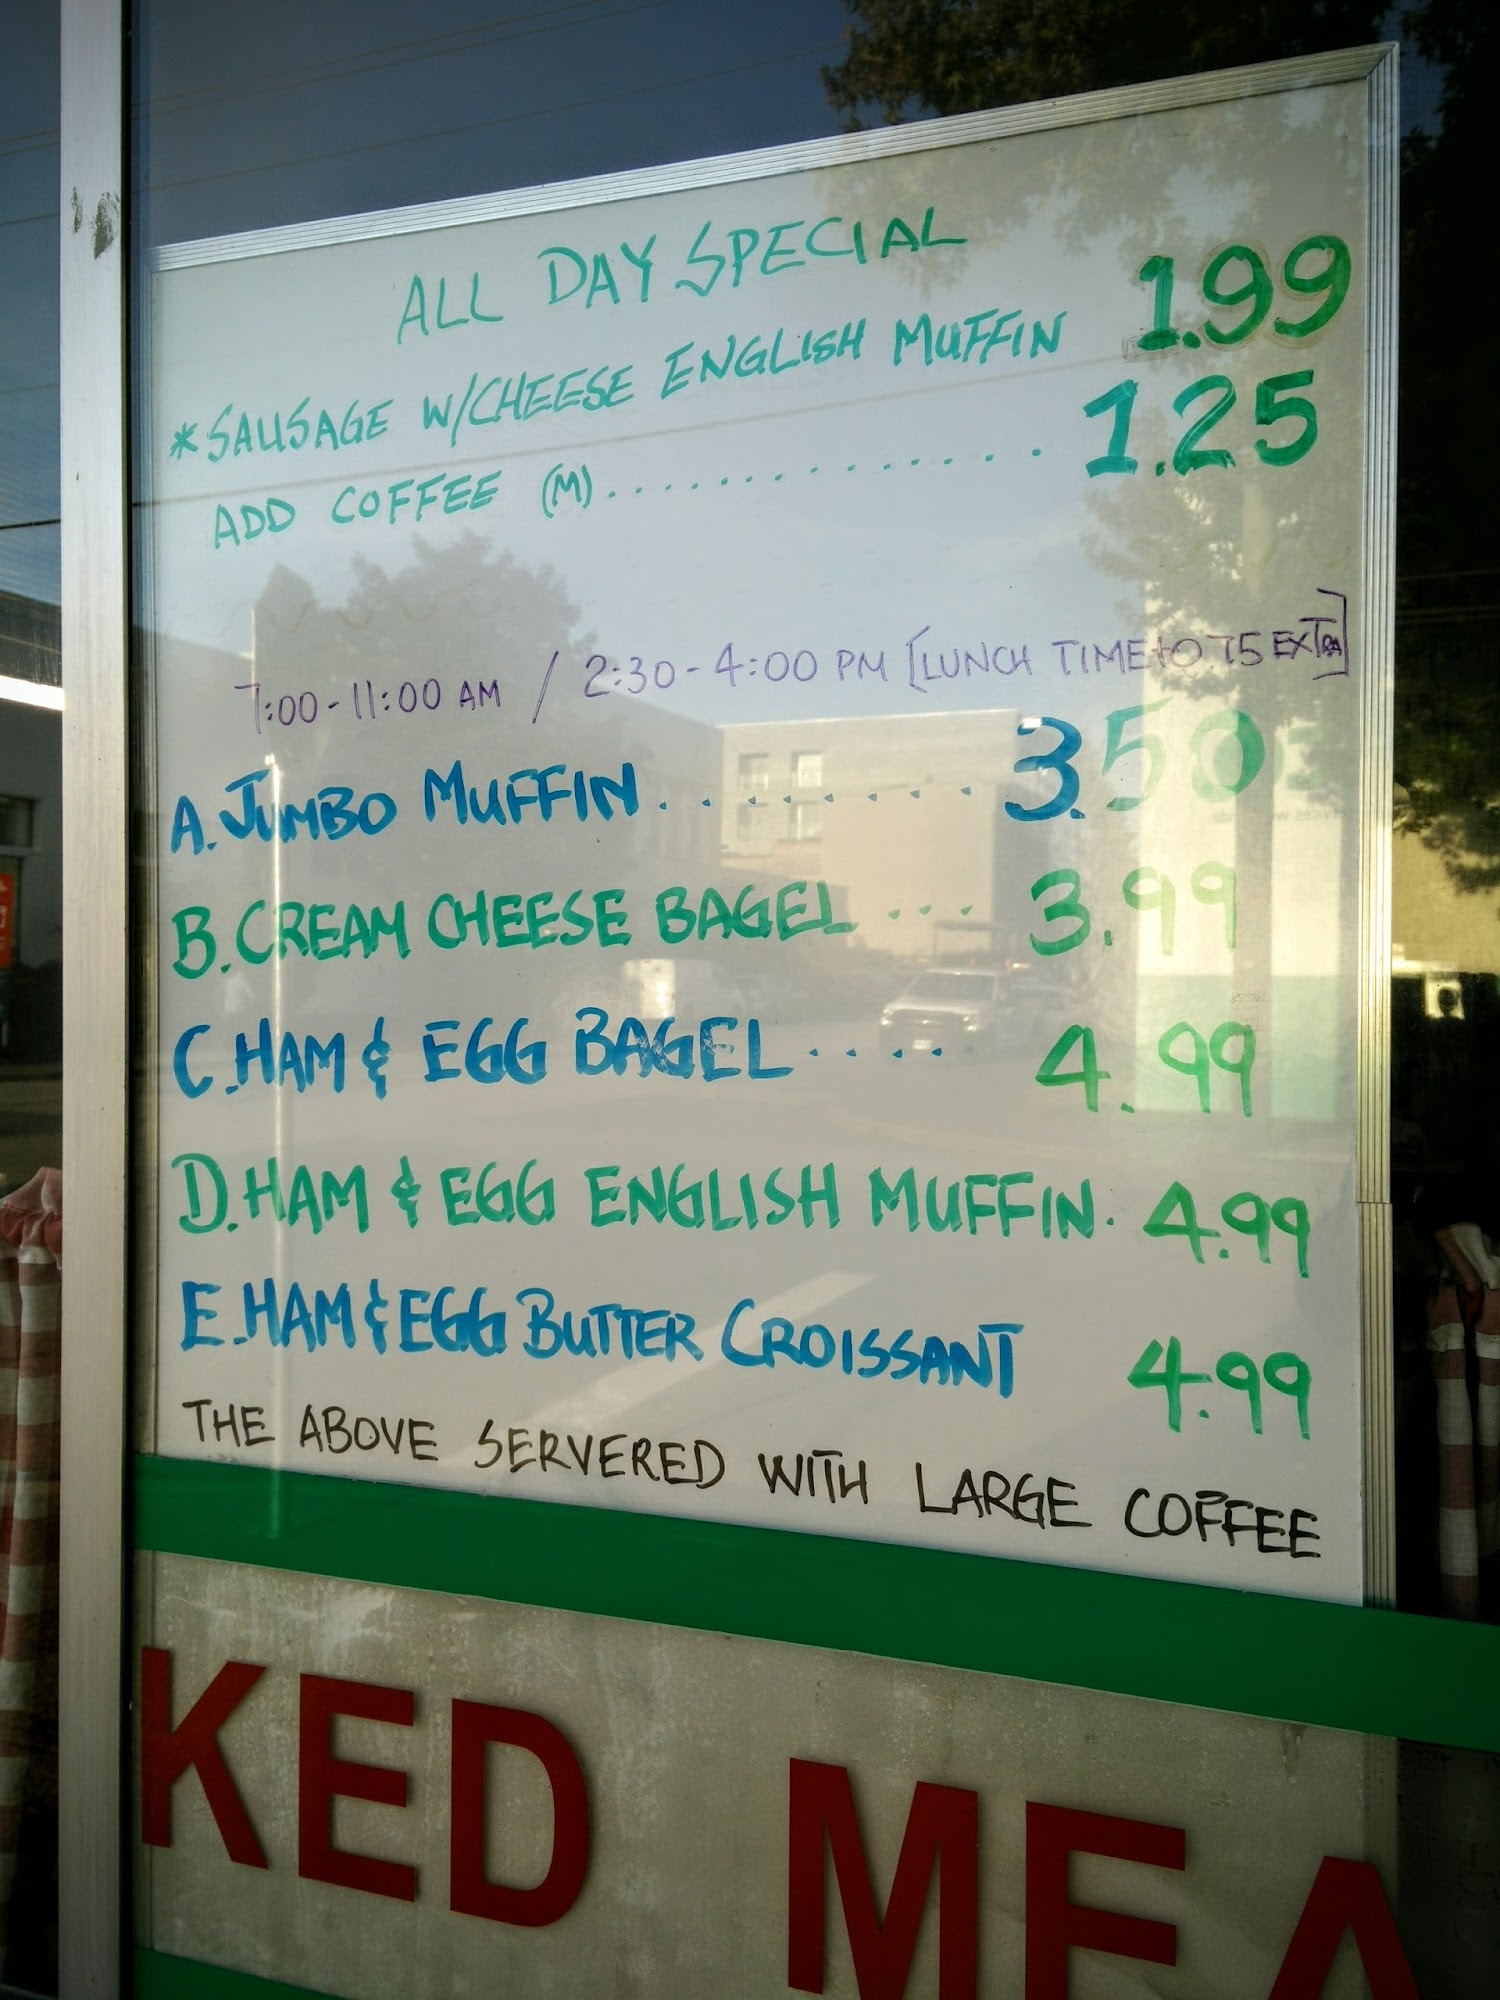 ALL DAY SPECIAL
*SAUSAGE W/CHEESE ENGLISH MUFFIN 1.99
ADD COFFEE (M)............. 1.25
7:00-11:00 AM / 2:30-4:00 PM [LUNCH TIME to 75 EXTRA]
A. JUMBO MUFFIN.......... 3.50
B. CREAM CHEESE BAGEL ... 3.99
C. HAM & EGG BAGEL .... 4.99
D. HAM & EGG ENGLISH MUFFIN. 4.99
E. HAM & EGG BUTTER CROISSANT 4.99
THE ABOVE SERVERED WITH LARGE COFFEE
KED MEA